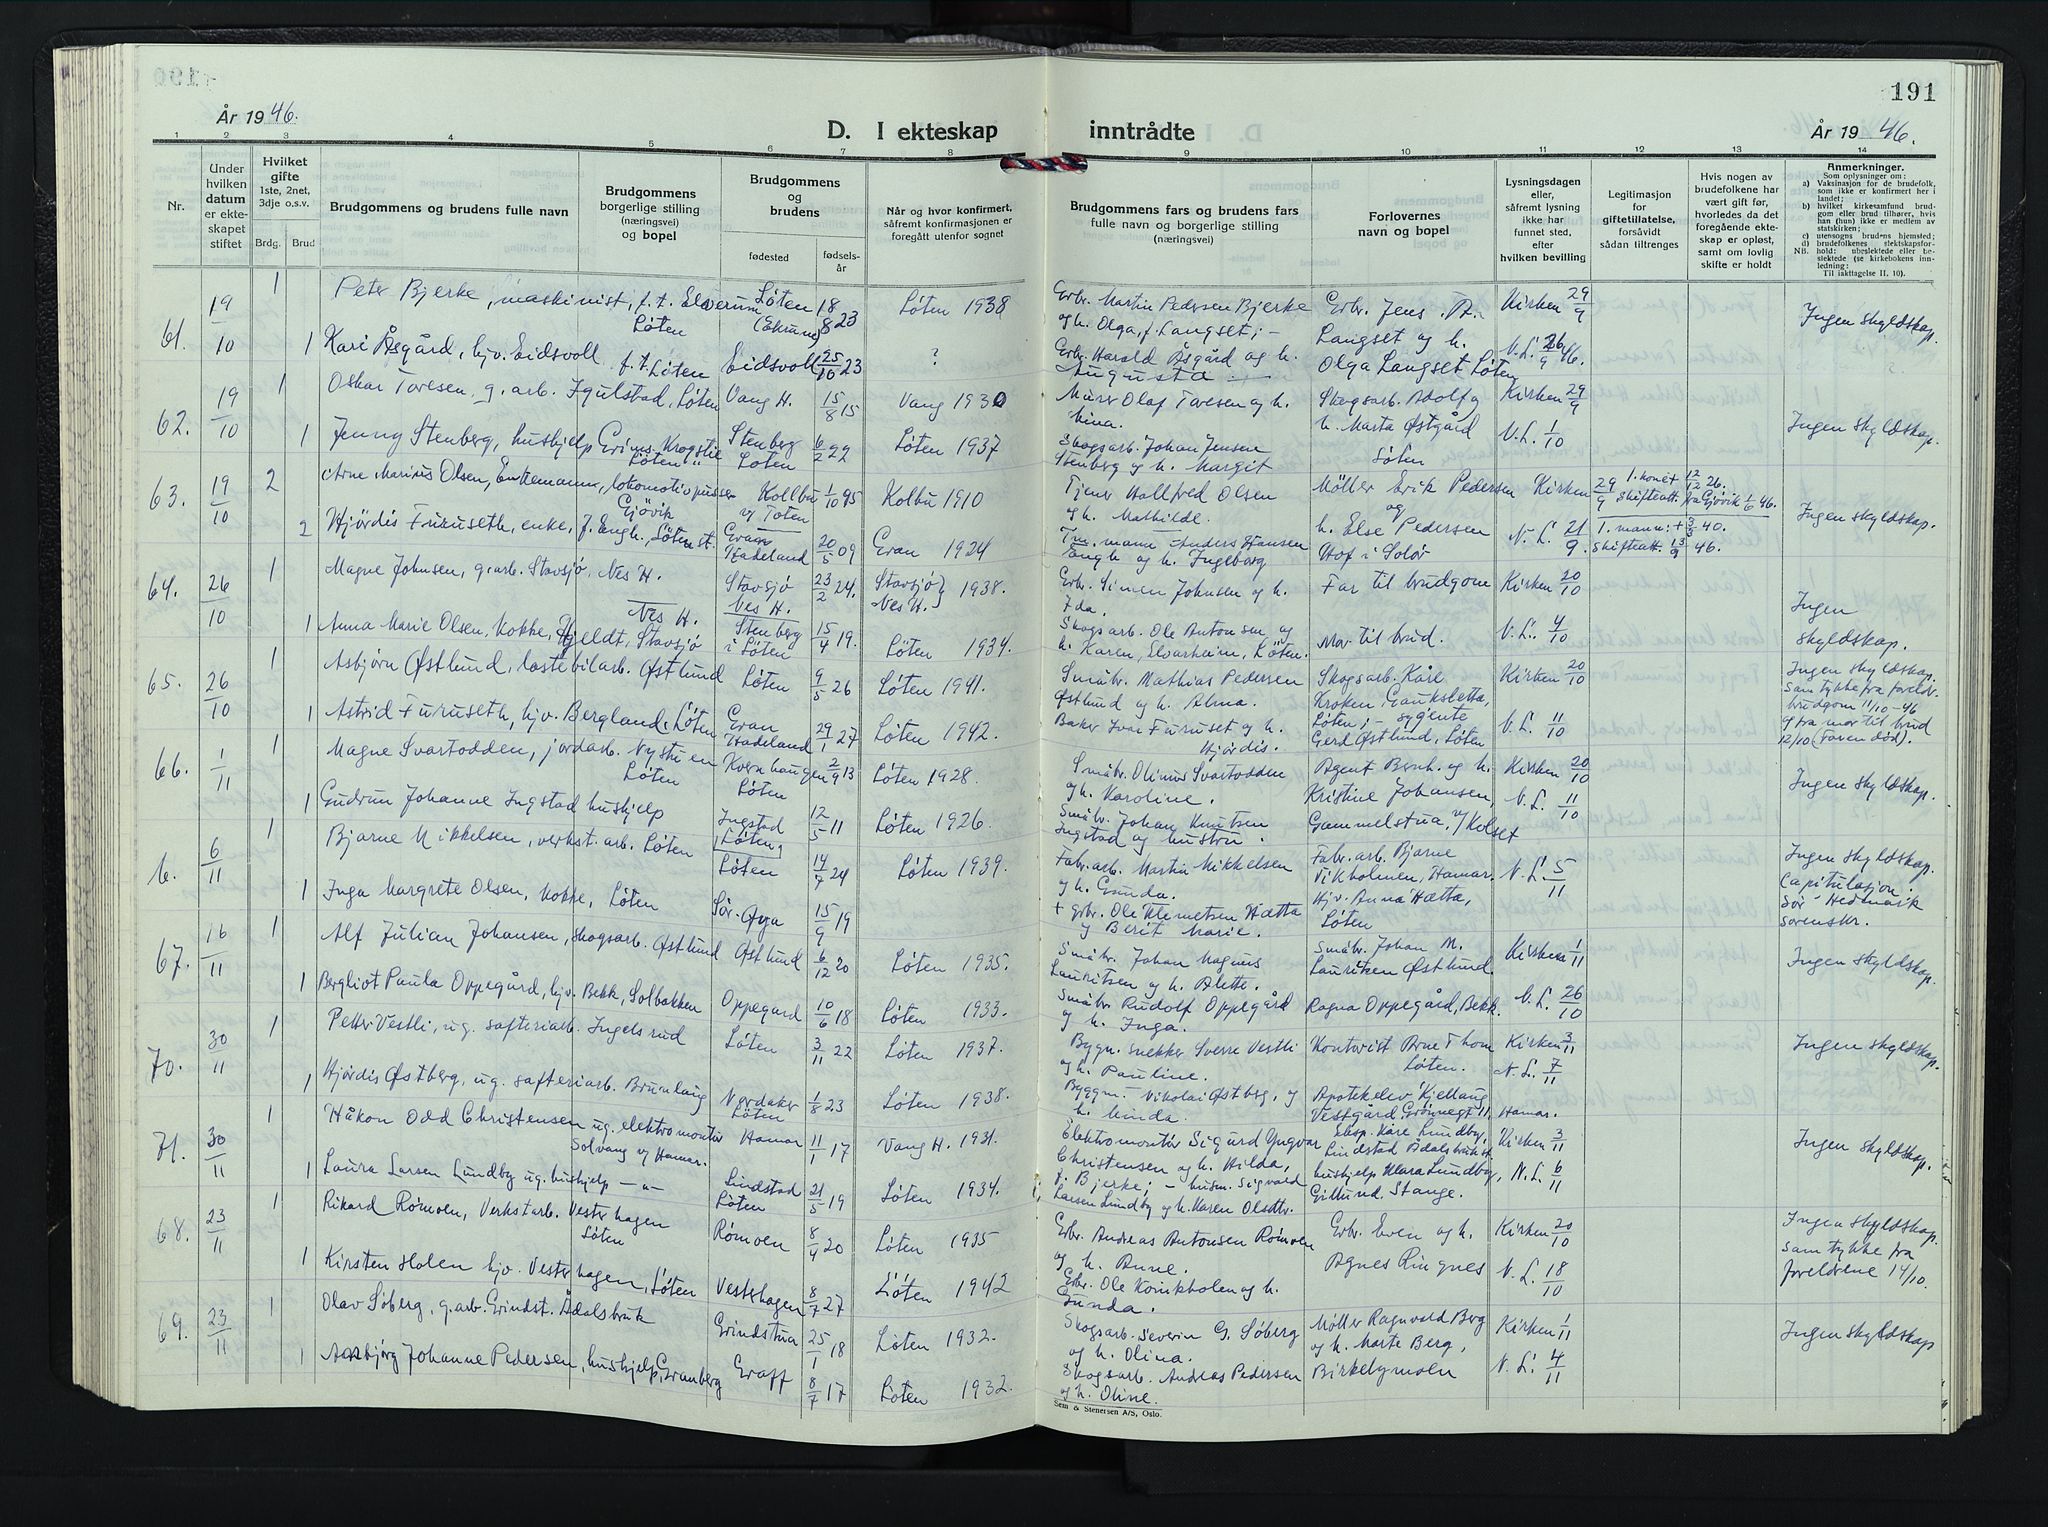 190
191
År 1946.
D. I ekteskap inntrådte
År 1946.
1 2 3 4 5 6 7 8 9 10 11 12 13 14
Nr.
Under hvilken datum er ekteskapet stiftet
Hvilket gifte 1ste, 2net, 3dje o.s.v.
Brdg. Brud
Brudgommens og brudens fulle navn
Brudgommens borgerlige stilling (næringsvei) og bopel
Brudgommens og brudens
fødested fødselsår
Når og hvor konfirmert, såfremt konfirmasjonen er foregått utenfor sognet
Brudgommens fars og brudens fars fulle navn og borgerlige stilling (næringsvei)
Forlovernes navn og bopel
Lysningsdagen eller, såfremt lysning ikke har funnet sted, efter hvilken bevilling
Legitimasjon for giftetillatelse, forsåvidt sådan tiltrenges
Hvis nogen av brudefolkene har vært gift før, hvorledes da det foregående ekteskap er opløst, samt om lovlig skifte er holdt
Anmerkninger.
Som oplysning om:
a) Vaksinasjon for de brudefolk, som ikke er konfirmert her i landet;
b) hvilket kirkesamfund brudgom eller brud tilhører, hvis han (hun) ikke er medlem av statskirken;
c) utensogns brudens hjemsted;
d) brudefolkenes slektskapsforhold: ubeslektede eller beslektede (se kirkebokens innledning:
NB. Til iakttagelse II, 10).
61. 19/10 1 Peter Bjerke, maskinist, f. t. Elverum Løten Løten (Ekrum) 18/8 23 Løten 1938 Grbr. Martin Pedersen Bjerke og h. Olga, f. Langset; - Grbr. Jens Langset og h. Olga Langset Løten Kirken 29/9 Ingen skyldskap.
1 Kari Åsgård, hjv. Eidsvoll f. t. Løten Eidsvoll 25/10 23 ? Grbr. Harald Åsgård og h. Augusta N. L. 26/9 46.
62. 19/10 1 Oskar Toresen, g. arb. Igulstad, Løten Vang H. 15/8 15 Vang 1930 Murer Olaf Toresen og h. Mina. Skogsarb. Adolf og h. Marta Østgård Løten Kirken 29/9 Ingen skyldskap.
1 Jenny Stenberg, hushjelp Grims-Krogstie Løten Stenberg Løten 6/2 22 Løten 1937 Skogsarb. Johan Jensen Stenberg og h. Margit N. L. 1/10
63. 19/10 2 Arne Marius Olsen, Enkemann, lokomotivpusser Gjövik Kollbu v/ Toten 1/10 95 Kolbu 1910 Tjener Hallfred Olsen og h. Mathilde. Möller Erik Pedersen og h. Else Pedersen Hof i Solör Kirken 29/9 1. kone † 12/12 26. skifteatt. fra Gjövik 1/6 46. Ingen skyldskap.
2 Hjördis Furuseth, enke, f. Engh, Løten st. Gran Hadeland 20/5 09 Gran 1924 Tm. mann Anders Hansen Engh og h. Ingeborg N. L. 21/9 1. mann: † 3/3 40. skifteatt. 13/9 46.
64. 26/10 1 Magne Johnsen, g. arb. Stavsjö, Nes H. Stavsjö Nes H. 23/2 24. Stavsjö Nes H. 1938. Grbr. Simen Johnsen og h. Ida. Far til brudgom Kirken 20/10 Ingen skyldskap.
1 Anna Marie Olsen, Kokke, Hjelldt, Stavsjö Nes H. Stenberg i Løten 15/4 19. Löten 1934. Skogsarb. Ole Antonsen og h. Karen, Elvarheim, Løten. Mor til brud. N. L. 4/10
65. 26/10 1 Asbjørn Østlund, lastebilarb. Østlund Løten 9/5 26 Løten 1941. Småbr. Mathias Pedersen Østlund og h. Alma. Skogsarb. Kåre Kroken, Gauksletta, Løten; - syijente Gerd Østlund, Løten Kirken 20/10 Ingen skyldskap. Samtykke fra foreldr. brudgom 11/10-46 & fra mor til brud 12/10 (Faren død).
1 Astrid Furuseth, hjv. Bergland, Løten Gran Hadeland 29/1 27 Løten 1942. Baker Ivar Furuset og h. Hjørdis. N. L. 11/10
66. 1/11 1 Magne Svartodden, jordarb. Nystuen Løten Kvernhaugen Løten 2/9 13 Løten 1928 Småbr. Olinus Svartodden og h. Karoline. Agent Bernh. og h. Kristine Johansen, Gammelstua, v/ Kolset Kirken 20/10 Ingen skyldskap.
1 Gudrun Johanne Ingstad hushjelp Ingstad Løten 12/5 11 Løten 1926. Småbr. Johan Knutsen Ingstad og hustru. N. L. 11/10
6. 6/11 1 Bjarne Mikkelsen, verkst. arb. Løten Løten 14/7 24 Løten 1939. Fabr. arb. Martin Mikkelsen og h. Gunda. Fabr. arb. Bjarne Vikholmen, Hamar. Hjv. Anna Hætta, Løten N. L. 5/11 Ingen skyldskap. Capitulasjon. Sør-Hedmark sorenskr.
1 Inga Margrete Olsen, Kokke, Løten Sör-Øya 15/9 19 + grbr. Ole Klemetsen Hætta og Berit Marie.
67. 16/11 1 Alf Julian Johansen, skogsarb. Østlund Østlund 6/12 20 Løten 1935. Småbr. Johan Magnus Lauritsen og h. Alette. Småbr. Johan M. Lauritzen Østlund. Kirken 1/11 Ingen skyldskap.
1 Bergliot Paula Oppegård, hjv. Bekk, Solbakken Oppegard 10/6 18 Løten 1933. Småbr. Rudolf Oppegård og h. Inga. Ragna Oppegård, Bekk. N. L. 26/10
70. 30/11 1 Petter Vestli, ug. safteriarb. Ingelsrud Løten 3/11 22 Løten 1937. Bygn. snekker Sverre Vestli og h. Pauline. Kontorist Arne Thom Løten. Kirken 3/11 Ingen skyldskap.
1 Hjördis Østberg, ug. safteriarb. Brunlaug Nordaker Løten 1/8 23 Løten 1938. Byggm. Nikolai Østberg, og h. Minda. Apotekelev Kjellaug Vestgård, Grønnegt 11, Hamar. N. L. 7/11
71. 30/11 1 Håkon Odd Christensen ug. elektromontör Solvang v/ Hamar. Hamar 11/1 17 Vang H. 1931. Elektromontör Sigurd Yngvar Christensen og h. Hilda, f. Bjerke; - Eksp. Kåre Lundby, Lindstad Ådalsbruk st. hushjelp Klara Lundby, Gillund. Stange. Kirken 3/11 Ingen skyldskap.
1 Laura Larsen Lundby ug. hushjelp -"- Lindstad Løten 21/5 19 Løten 1934. husm. Sigvald Larsen Lundby og h. Karen Olsdtr. N. L. 6/11
68. 23/11 1 Rikard Rømoen, Verkstarb. Vesterhagen Løten Rømoen 8/4 20 Løten 1935 Grbr. Andreas Antonsen Rømoen og h. Anne. Grbr. Even og h. Agnes Ringnes Kirken 20/10 Ingen skyldskap. Samtykke fra foreldrene 14/10.
1 Kirsten Holen hjv. Vesterhagen, Løten Vesterhagen 8/7 27 Löten 1942 Grbr. Ole Konikholen og h. Gunda. N. L. 18/10
69. 23/11 1 Olav Søberg, g. arb. Grindst. Ådalsbruk Grindstua 25/1 18 Løten 1932. Skogsarb. Severin G. Søberg og h. Olina. Møller Ragnvald Berg og h. Marte Berg, Birkebymoen Kirken 1/11 Ingen skyldskap
1 Asbjørg Johanne Pedersen, hushjelp, Granberg Graff 8/7 17 Løten 1932. Skogsarb. Andreas Pedersen og h. Oline. N. L. 4/11
Sem & Stenersen A/S, Oslo.